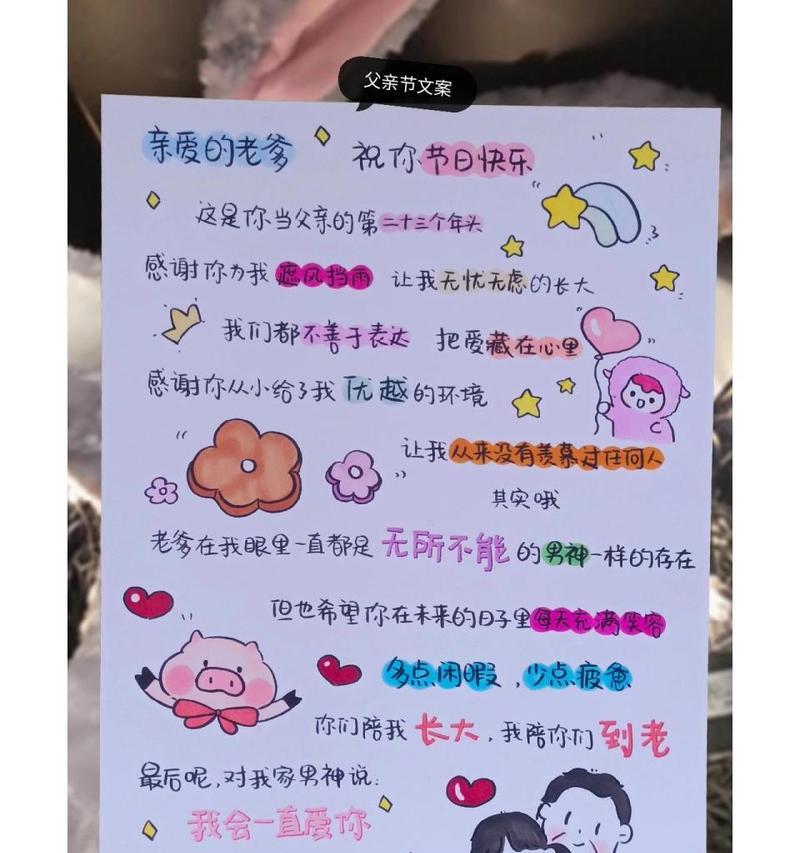 父亲节文案
亲爱的老爹 祝你节日快乐
这是你当父亲的第二十三个年头
感谢你为我遮风挡雨 让我无忧无虑的长大
我们都不善于表达 把爱藏在心里
感谢你从小给了我优越的环境
让我从来没有羡慕过任何人
其实哦
老爹在我眼里一直都是无所不能的男神一样的存在
但也希望你在未来的日子里每天充满笑容
多点闲暇，少点疲惫
你们陪我长大，我陪你们到老
最后呢，对我家男神说：
我会一直爱你